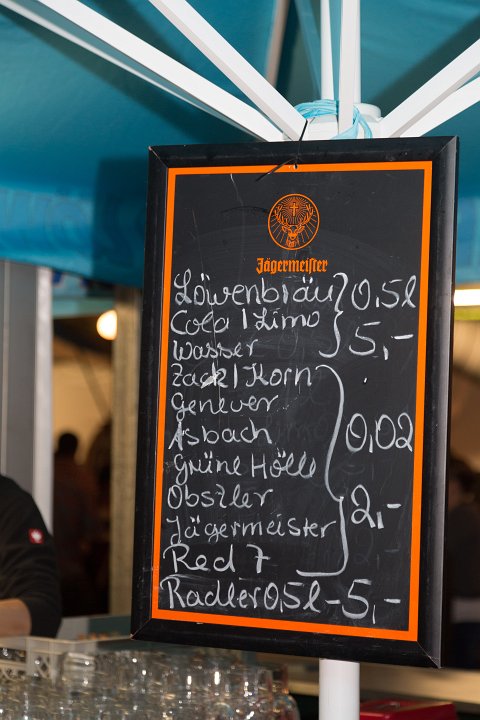 Jägermeister
Löwenbräu 0,5l
Cola / Limo
Wasser 5,-
Zack / Korn
Genever
Asbach 0,02
Grüne Hölle
Obstler 2,-
Jägermeister
Red 7
Radler 0,5l - 5,-